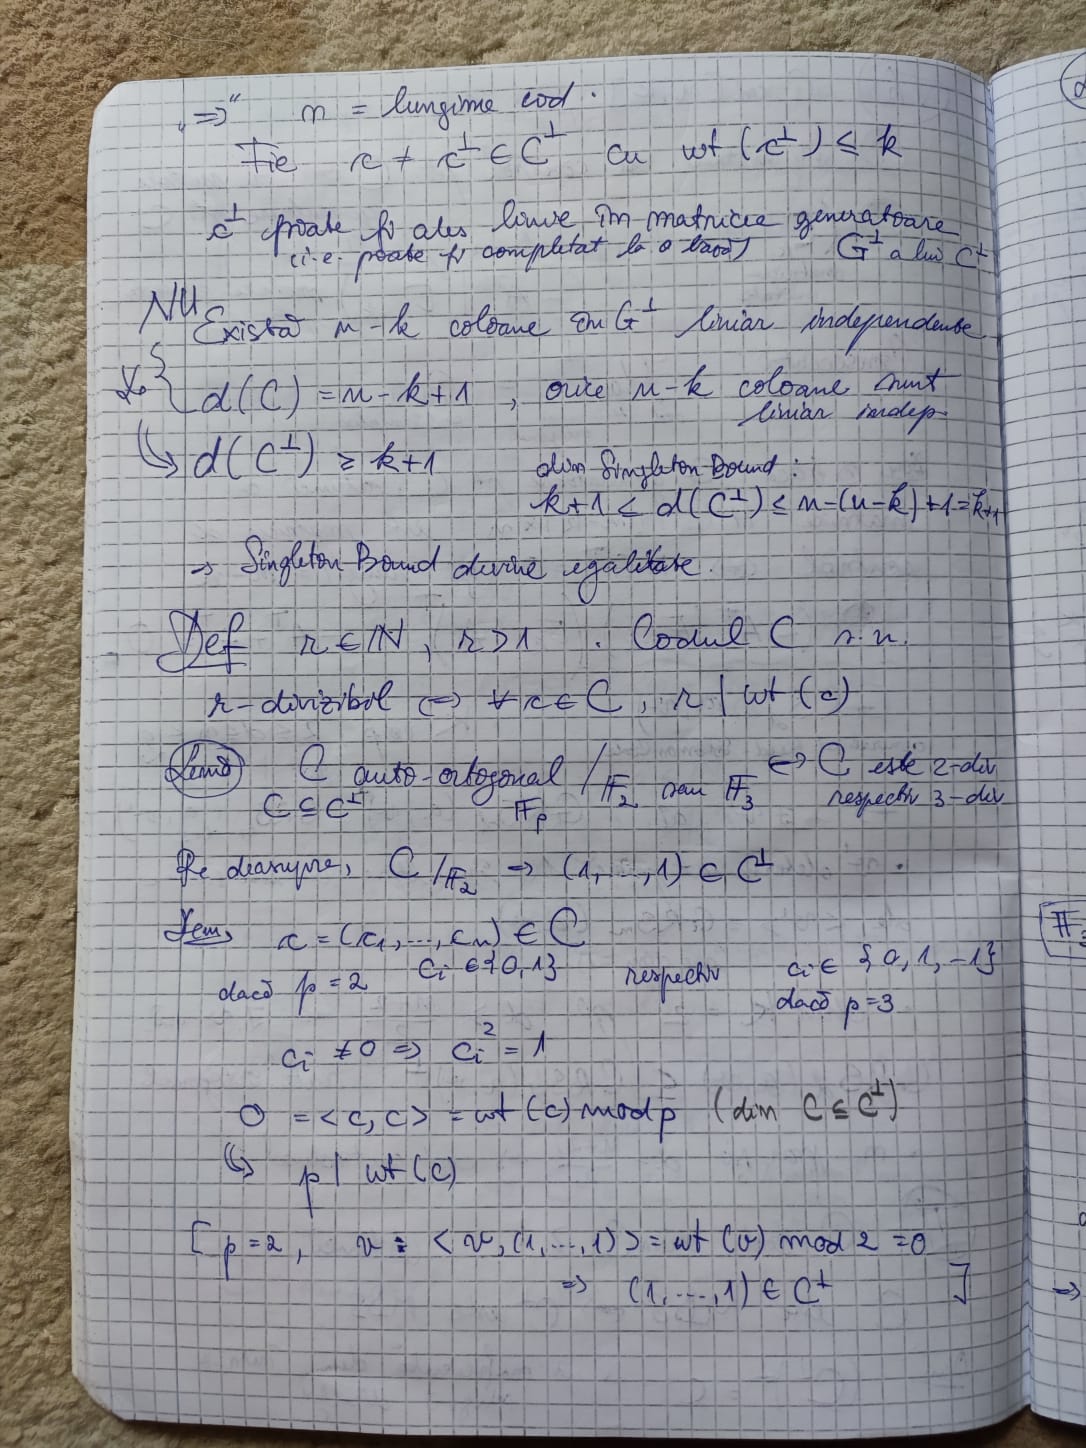 „⇒" n = lungime cod.
Fie c ≠ c^⊥ ∈ C^⊥ cu wt (c^⊥) ≤ k
c^⊥ poate fi ales linie în matricea generatoare
(i.e. poate fi completat la o bază) G^⊥ a lui C^⊥
NU
Există n-k coloane în G^⊥ liniar independente
d(C) = n-k+1, orice n-k coloane sunt
liniar indep.
↳ d(C^⊥) ≥ k+1 din Singleton Bound:
k+1 ≤ d(C^⊥) ≤ n-(n-k)+1 = k+1
→ Singleton Bound devine egalitate.
Def r ∈ ℕ, r > 1. Codul C s.n.
r-divizibil ⇔ ∀ c ∈ C, r | wt (c)
Lemă C auto-ortogonal / 𝔽_2 sau 𝔽_3 ⇔ C este 2-div
C ⊆ C^⊥ 𝔽_p respectiv 3-div
Pe deasupra, C/𝔽_2 ⇒ (1,...,1) ∈ C^⊥
Dem, c = (c_1,...,c_n) ∈ C
dacă p = 2 c_i ∈ {0,1} respectiv c_i ∈ {0,1,-1}
dacă p=3
c_i ≠ 0 ⇒ c_i^2 = 1
0 = <c,c> = wt (c) mod p (din C ⊆ C^⊥)
↳ p | wt (c)
[ p=2, v : <v,(1,...,1)> = wt (v) mod 2 = 0
⇒ (1,...,1) ∈ C^⊥ ]
𝔽_3
⇒